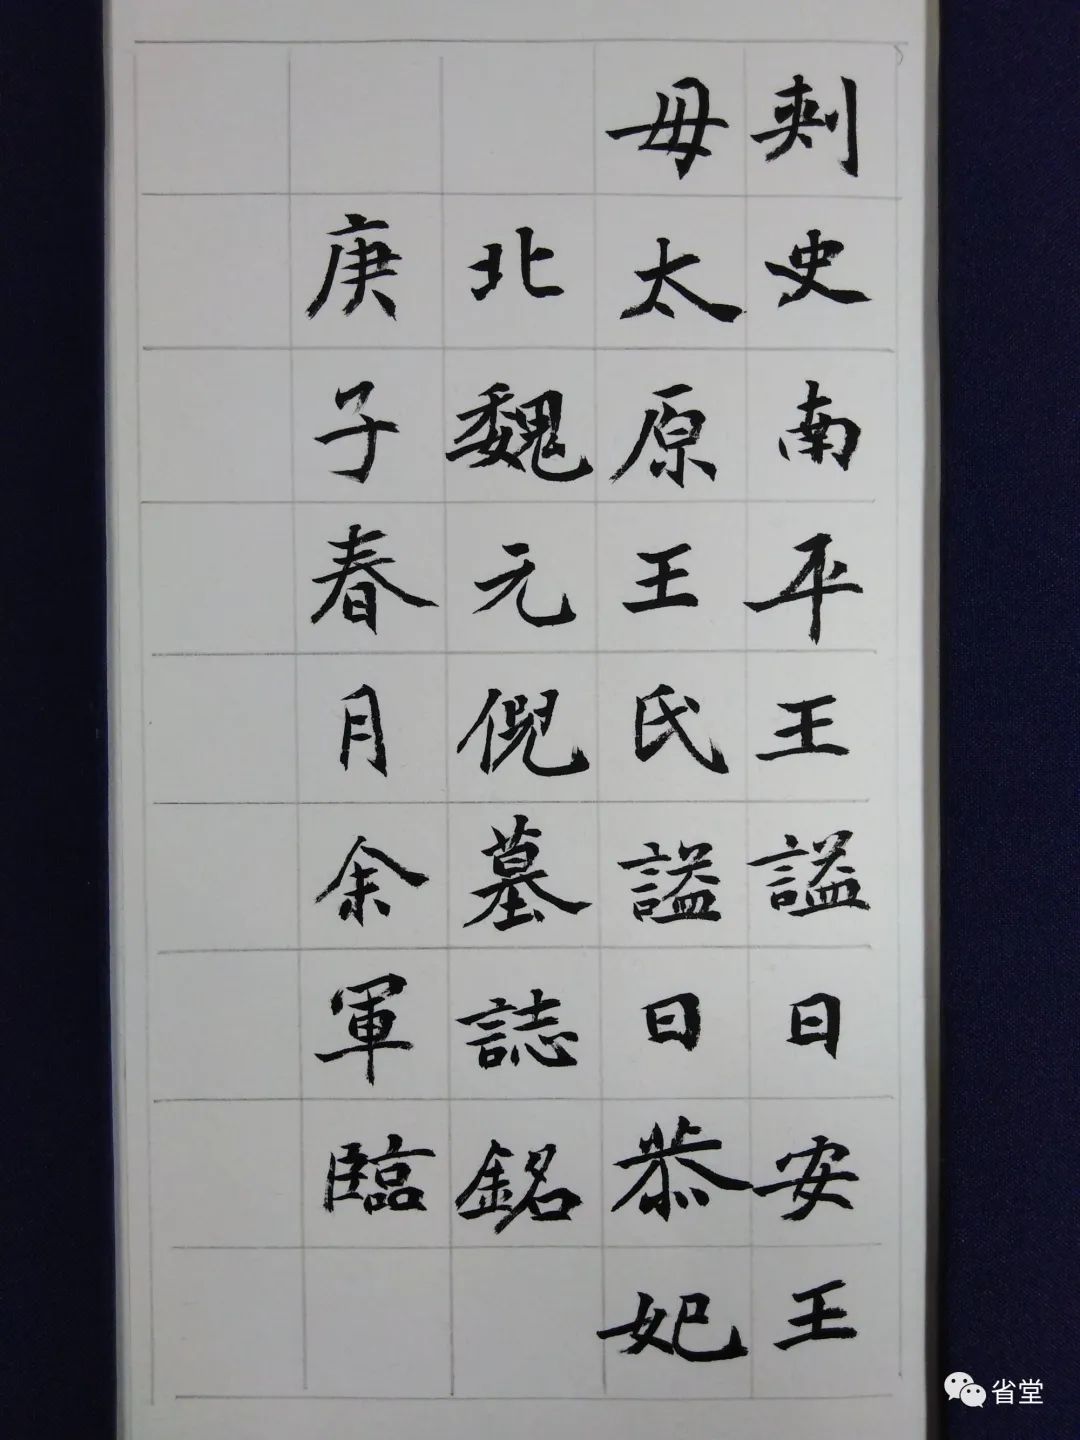 刺史南平王謚曰安王
母太原王氏謚曰恭妃
北魏元倪墓誌銘
庚子春月余軍臨
省堂